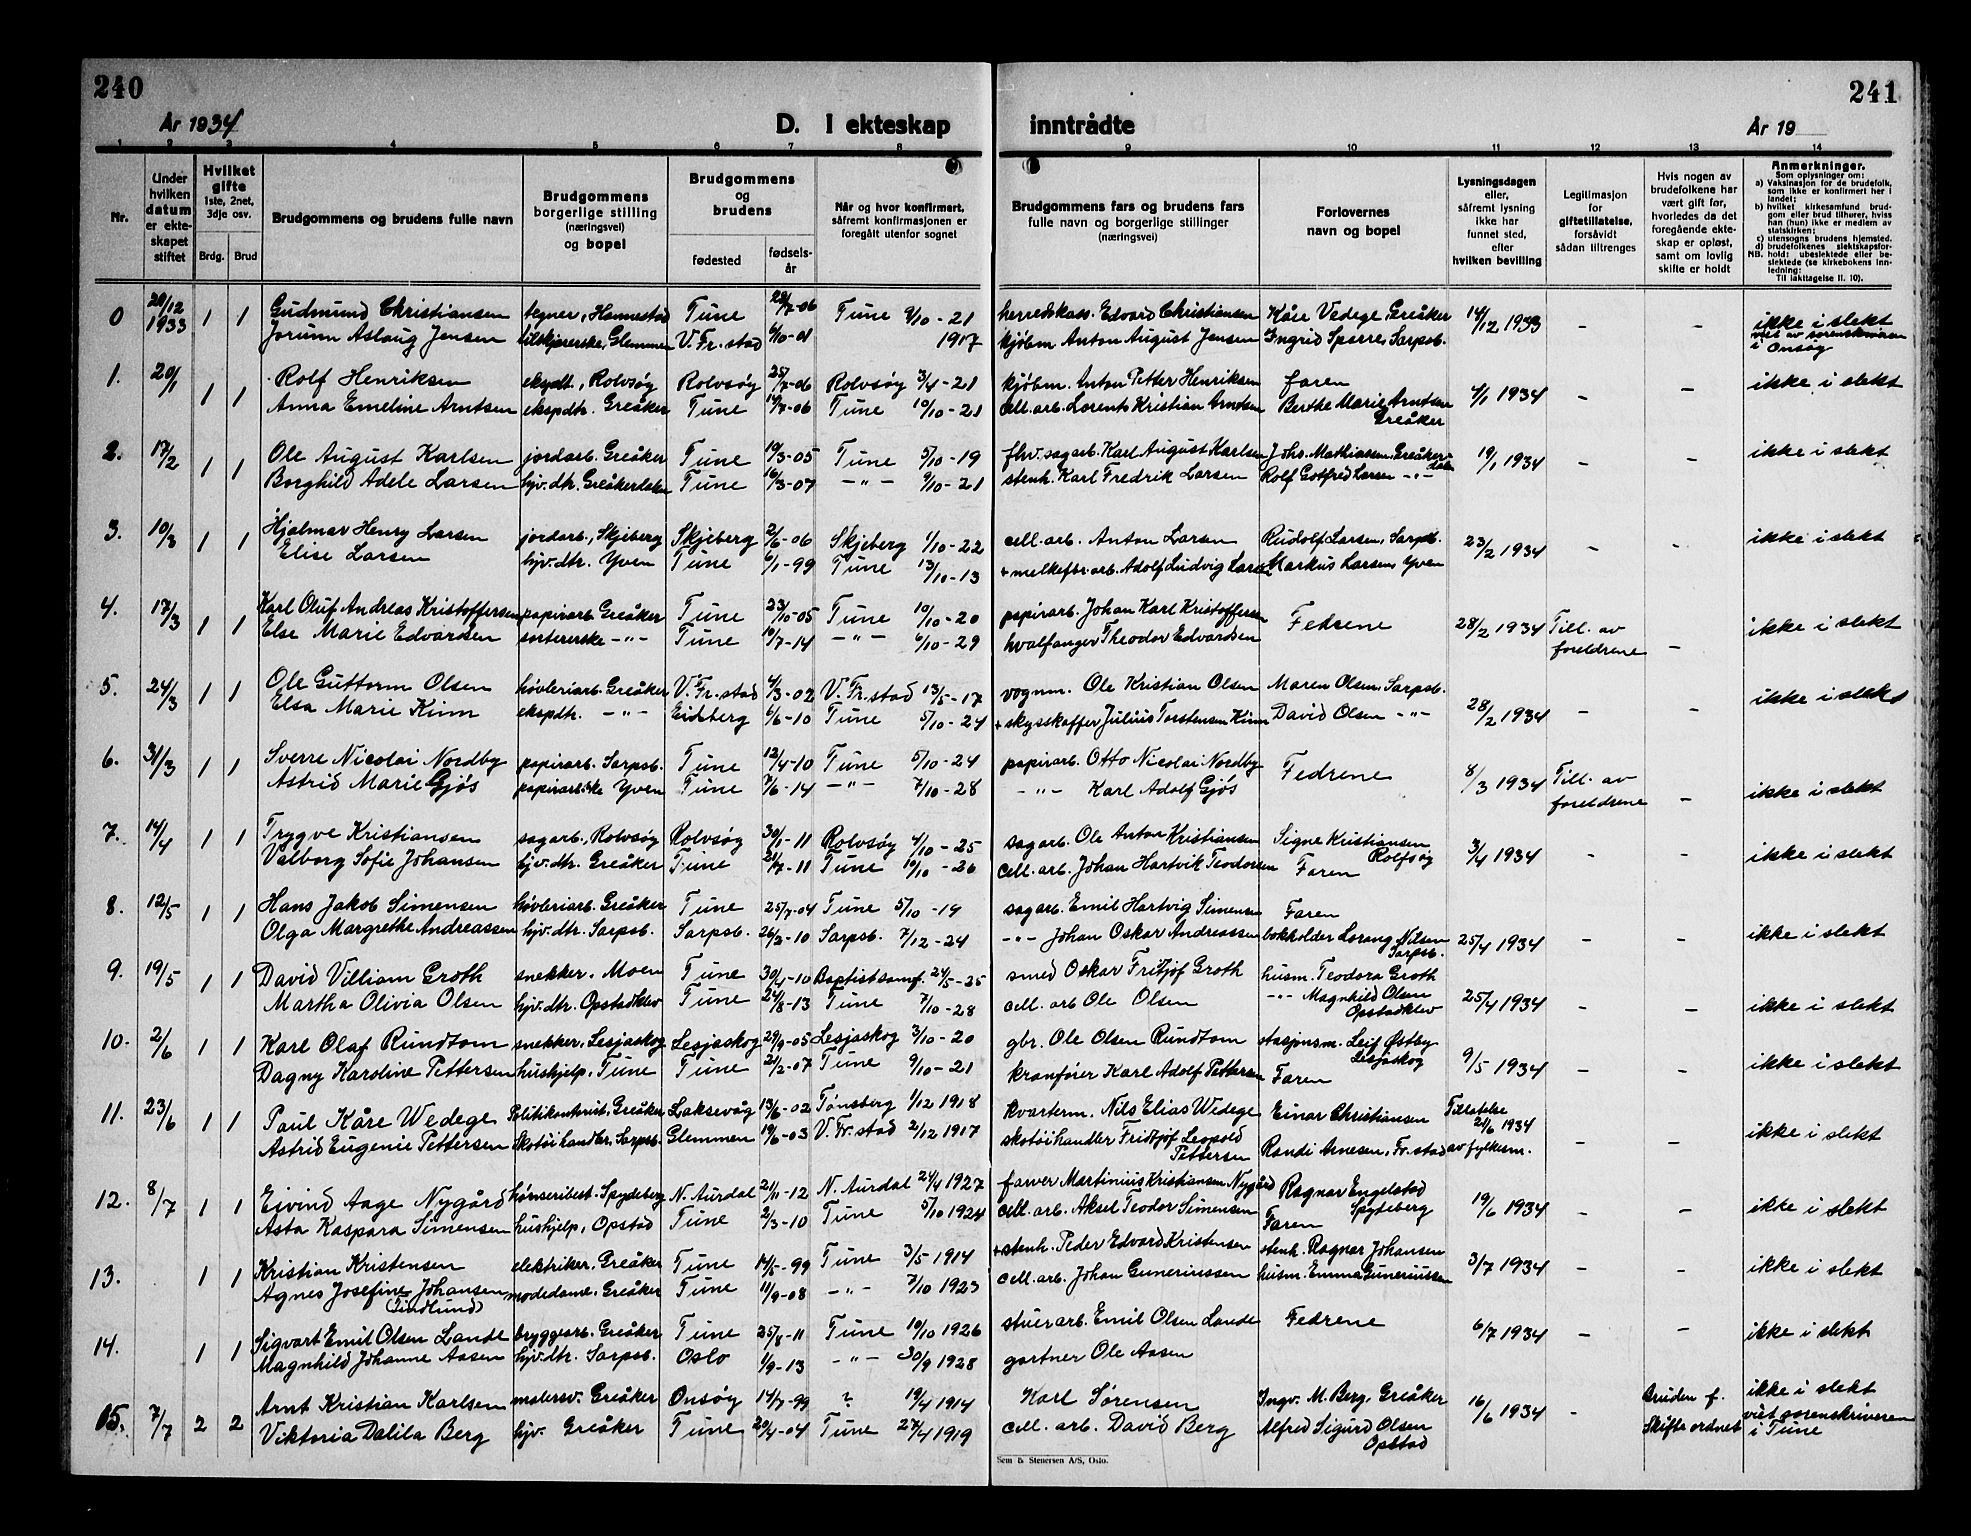 240
241
År 1934
D. I ekteskap inntrådte
År 19
1 2 3 4 5 6 7 8 9 10 11 12 13 14
Nr.
Under hvilken datum er ekteskapet stiftet
Hvilket gifte 1ste, 2net, 3dje osv.
Brdg. Brud
Brudgommens og brudens fulle navn
Brudgommens borgerlige stilling (næringsvei) og bopel
Brudgommens og brudens
fødested
fødselsår
Når og hvor konfirmert, såfremt konfirmasjonen er foregått utenfor sognet
Brudgommens fars og brudens fars fulle navn og borgerlige stillinger (næringsvei)
Forlovernes navn og bopel
Lysningsdagen eller, såfremt lysning ikke har funnet sted, efter hvilken bevilling
Legitimasjon for giftetillatelse, forsåvidt sådan tiltrenges
Hvis nogen av brudefolkene har vært gift før, hvorledes da det foregående ekteskap er opløst, samt om lovlig skifte er holdt
Anmerkninger.
Som oplysninger om:
a) Vaksinasjon for de brudefolk, som ikke er konfirmert her i landet;
b) hvilket kirkesamfund brudgom eller brud tilhører, hviss han (hun) ikke er medlem av statskirken;
c) utensogns brudens hjemsted.
d) brudefolkenes slektskapsforhold: ubeslektede eller beslektede (se kirkebokens innledning:
NB. Til iakttagelse II. 10).
0 20/12 1933 1 1 Gudmund Christiansen tegner, Hannestad Tune 28/7-06 Tune 9/10-21 herredskass. Edvard Christiansen Kåre Vedege Greåker 14/12 1933 - - ikke i slekt
Jorunn Aslaug Jensen tilskjærerske, Glemmen V. Fr.stad 6/10-01 1917 kjøbm Anton August Jensen Ingrid Sparre, Sarpsb. viet av sorenskriveren i Onsøy
1. 20/1 1 1 Rolf Henriksen ekspdt., Rolvsøy Rolvsøy 25/7-06 Rolvsøy 3/4-21 kjøbm. Anton Petter Henriksen faren 4/1 1934 - - ikke i slekt
Anna Emeline Arntsen ekspdtr. Greåker Tune 14/7-06 Tune 10/10-21 cell.arb. Lorents Kristian Arntsen Berthe Marie Arntsen Greåker
2. 17/2 1 1 Ole August Karlsen jordarb. Greåker Tune 10/3-05 Tune 5/10-19 fhv. sagarb. Karl August Karlsen Johs. Mathiassen, Greåkerdalen 19/1 1934 - - ikke i slekt
Borghild Adele Larsen hjv.dtr. Greåkerdalen Tune 16/3-07 -"- 9/10-21 stenh. Karl Fredrik Larsen Rolf Gotfred Larsen -"-
3. 10/3 1 1 Hjalmar Henry Larsen jordarb., Skjeberg Skjeberg 2/6-06 Skjeberg 1/10-22 cell. arb. Anton Larsen Rudolf Larsen, Sarpsb. 23/2 1934 - - ikke i slekt
Elise Larsen hjv.dtr. Yven Tune 6/1-99 Tune 13/10-13 + melkefbr.arb. Adolf Ludvig Larsen Markus Larsen, Yven
4. 17/3 1 1 Karl Oluf Andreas Kristoffersen papirarb. Greåker Tune 23/10-05 Tune 10/10-20 papirarb. Johan Karl Kristoffersen Fedrene 28/2 1934 Till. av foreldrene - ikke i slekt
Else Marie Edvardsen sortererske -"- Tune 10/7-14 -"- 6/10-29 hvalfanger Theodor Edvardsen
5. 24/3 1 1 Ole Guttorm Olsen høvleriarb. Greåker V. Fr.stad 4/3-02 V. Fr.stad 13/5-17 vognm. Ole Kristian Olsen Maren Olsen, Sarpsb. 28/2 1934 - - ikke i slekt
Elsa Marie Kinn ekspdtr. -"- Eidsberg 6/6-10 Tune 5/10-24 + skysskaffer Julius Torstensen Kinn David Olsen -"-
6. 31/3 1 1 Sverre Nicolai Nordby papirarb. Sarpsb. Tune 12/4-10 Tune 5/10-24 papirarb. Otto Nicolai Nordby Fedrene 8/3 1934 Till. av foreldrene - ikke i slekt
Astrid Marie Gjøs papirarbske Yven Tune 7/6-14 -"- 7/10-28 -"- Karl Adolf Gjøs
7. 14/4 1 1 Trygve Kristiansen sagarb., Rolvsøy Rolvsøy 30/1-11 Rolvsøy 4/10-25 sagarb. Ole Anton Kristiansen Signe Kristiansen Rolfsøy 3/4 1934 - - ikke i slekt
Valborg Sofie Johansen hjv.dtr. Greåker Tune 21/7-11 Tune 10/10-26 cell. arb. Johan Hartvik Teodorsen Faren
8. 12/5 1 1 Hans Jakob Simensen høvleriarb. Greåker Tune 25/7-04 Tune 5/10-19 sagarb. Emil Hartvig Simensen Faren 25/4 1934 - - ikke i slekt
Olga Margrethe Andreassen hjv.dtr. Sarpsb. Sarpsb. 26/3-10 Sarpsb. 7/12-24 -"- Johan Oskar Andreassen bokholder Lorang Nilsen Sarpsb.
9. 19/5 1 1 David Villiam Groth snekker. Moen Tune 30/4-10 Baptistsamf. 24/5-25 smed Oskar Fritjof Groth husm. Teodora Groth 25/4 1934 - - ikke i slekt
Martha Olivia Olsen hjv.dtr. Opstadklev Tune 24/8-13 Tune 7/10-28 cell. arb Ole Olsen -"- Magnhild Olsen Opstadklev
10. 2/6 1 1 Karl Olaf Rundtom snekker, Lesjaskog Lesjaskog 29/9-05 Lesjaskog 3/10-20 gbr. Ole Olsen Rundtom stasjonsm. Leif Østby Lesjaskog 9/5 1934 - - ikke i slekt
Dagny Karoline Pettersen hushjelp, Tune Tune 21/2-07 Tune 9/10-21 kranfører Karl Adolf Pettersen Faren
11. 23/6 1 1 Paul Kåre Wedege Politikonturist, Greåker Laksevåg 13/6-02 Tønsberg 1/12 1918 kvarterm. Nils Elias Wedege Einar Christiansen Tillatelse 21/6 1934 av fylkesm. - - ikke i slekt
Astrid Eugenie Pettersen Skotøihandler, Sarpsb. Glemmen 19/6-03 V. Fr.stad 2/12 1917 skotøihandler Fridtjof Leopold Pettersen Randi Arnesen, Fr.stad
12. 8/7 1 1 Eivind Aage Nygård hønseribest. Spydeberg N. Aurdal 21/11-12 N. Aurdal 24/4 1927 farver Martinius Kristiansen Nygård Ragnar Engelstad Spyteberg 19/6 1934 - - ikke i slekt
Asta Kaspara Simensen hushjelp, Opstad Tune 2/3-10 Tune 5/10 1924 cell. arb. Aksel Teodor Simensen Faren
13. 1 1 Kristian Kristensen elektriker, Greåker Tune 14/5-99 Tune 3/5 1914 + stenh. Peder Edvard Kristensen stenh. Ragnar Johansen 3/7 1934 - - ikke i slekt
Agnes Josefine Johansen (Lindlund) modedame, Greåker Tune 11/9-08 -"- 7/10 1923 cell. arb. Johan Guneriussen husm. Emma Guneriussen
14. 1 1 Sigvart Emil Olsen Lande bryggearb. Greåker Tune 25/8-11 Tune 10/10 1926 stuerarb. Emil Olsen Lande Fedrene 6/7 1934 - - ikke i slekt
Magnhild Johanne Aasen hjv.dtr. Sarpsb. Oslo 1/9-13 -"- 30/9 1928 gartner Ole Aasen
15. 7/7 2 2 Arnt Kristian Karlsen malersv. Greåker Onsøy 14/7-99 ? 19/4 1914 Karl Sørensen Ingv. M. Berg, Greåker 16/6 1934 - Bruden f. Skifte ordnet ikke i slekt
Viktoria Dalila Berg hjv. Greåker Tune 20/4-04 Tune 27/4 1919 cell. arb. David Berg Alfred Sigurd Olsen Opstad viet sorenskriveren i Tune
Sem & Stenersen A/S, Oslo.